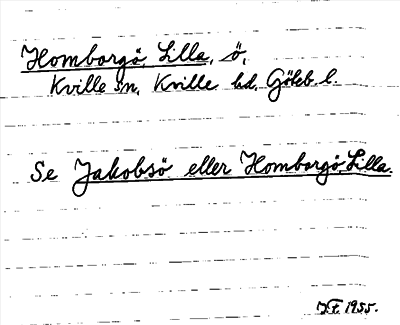 Homborgö, Lilla, ö,
Kville sn, Kville hd, Göteb. l.
Se Jakobsö eller Homborgö Lilla.
1955.